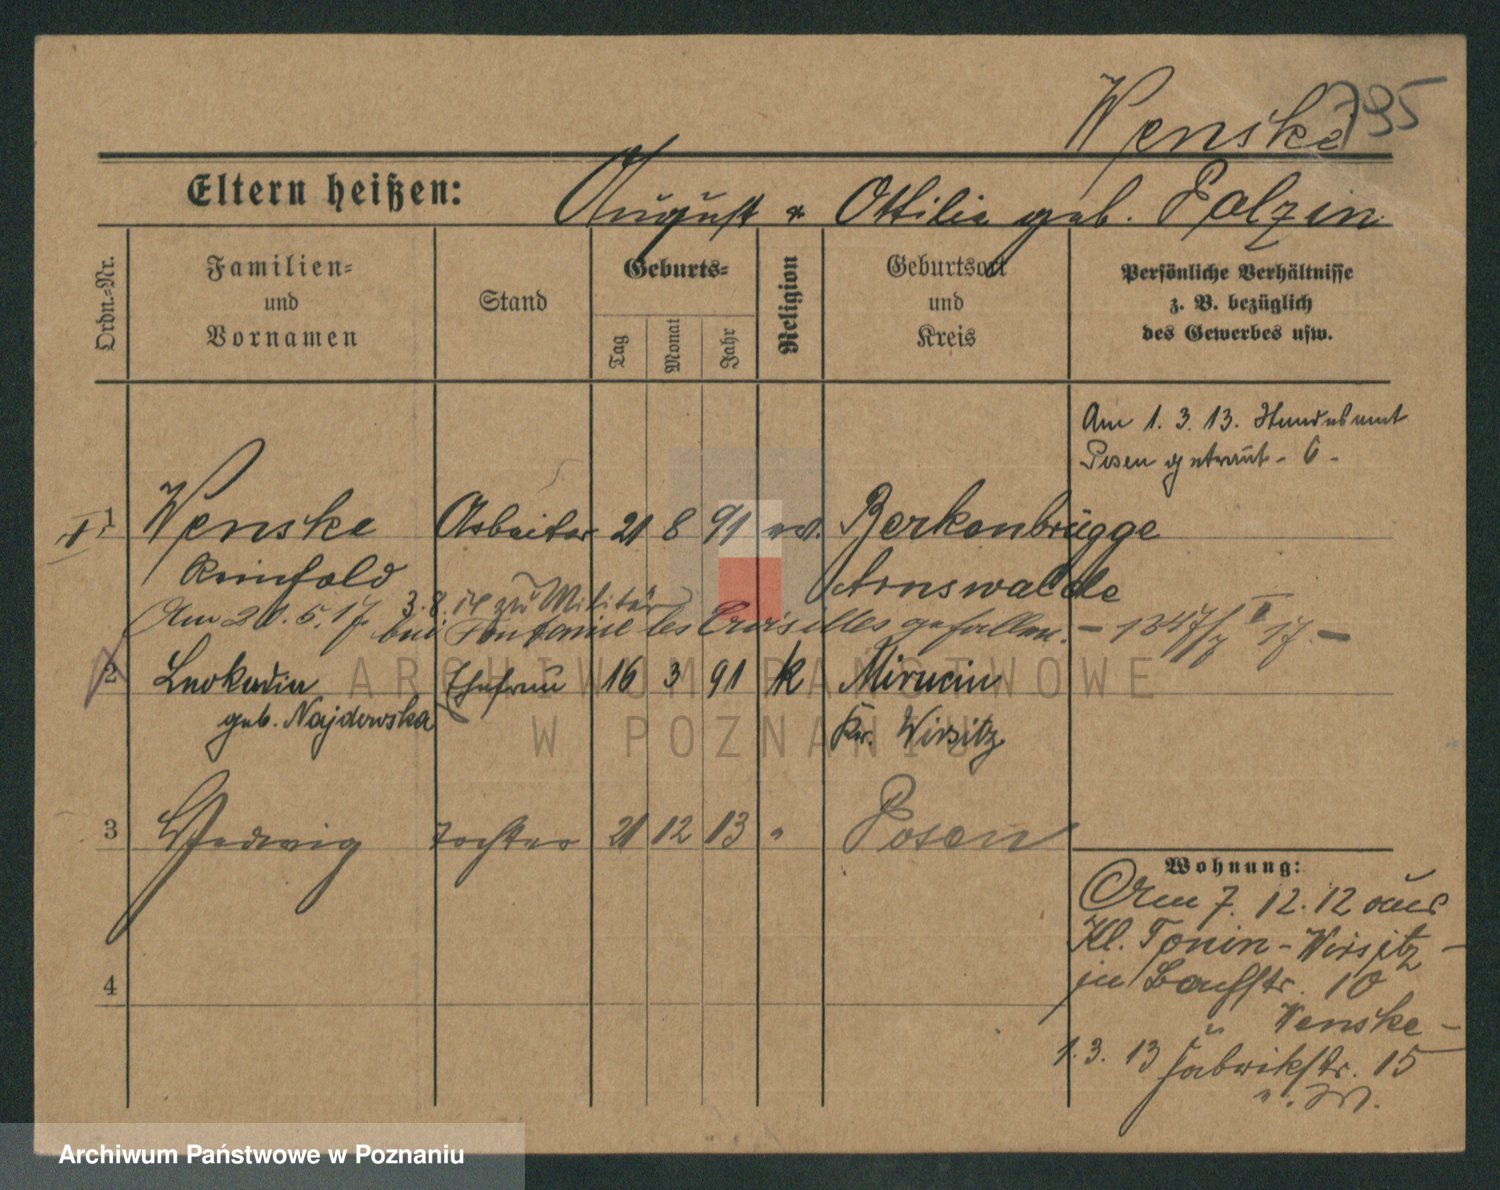 Wenske 795
Eltern heißen: August & Ottilie geb. Polzin
Ordn.-Nr.
Familien-
und
Vornamen
Stand
Geburts-
Tag
Monat
Jahr
Religion
Geburtsort
und
Kreis
Persönliche Verhältnisse
z. B. bezüglich
des Gewerbes usw.
Am 1. 3. 13. Standesamt
Posen getraut. 6 -
1 Wenske Arbeiter 21 8 91 ev. Berkenbrügge
Reinhold Arnswalde
3. 8. 14 zu Militär
Am 20. 5. 17. bei Fontaine les Croisilles gefallen. - 1347/7 II 17. -
2 Leokadia Ehefrau 16 3 91 k Mirucin
geb. Najdowska Kr. Wirsitz
3 Hedwig Tochter 21 12 13 " Posen
4
Wohnung:
Am 7. 12. 12 aus
Kl. Tonin - Wirsitz -
in 10
Wenske -
1. 3. 13 Fabrikstr. 15
ARCHIWUM PAŃSTWOWE
W POZNANIU
Archiwum Państwowe w Poznaniu